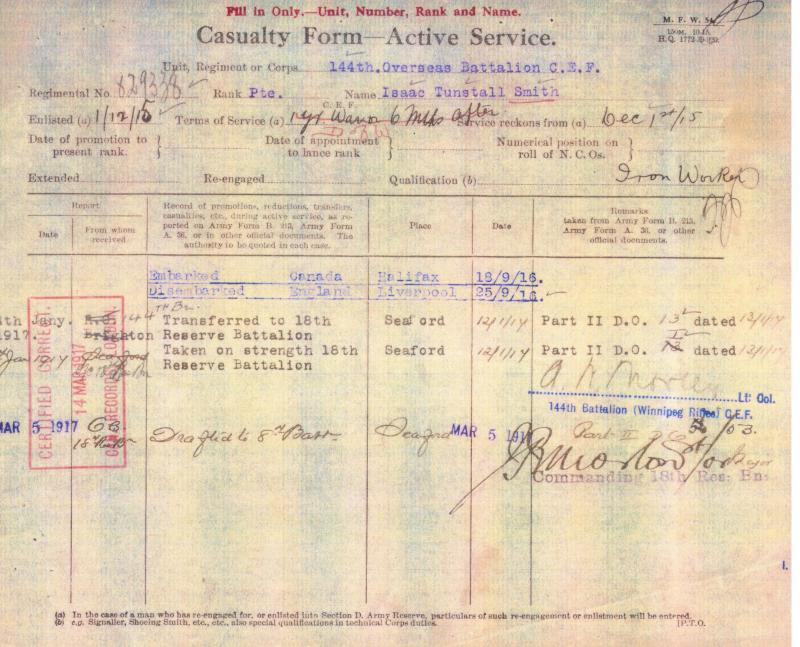 Fill in Only.—Unit, Number, Rank and Name.
M. F. W. 54
Casualty Form—Active Service.
150M. 10-15.
H.Q. 1772-39-920.
Unit, Regiment or Corps 144th.Overseas Battalion C.E.F.
Regimental No. 829338 Rank Pte. Name Isaac Tunstall Smith
C. E. F.
Enlisted (a) 1/12/15 Terms of Service (a) 1 yr War or 6 Mths after Service reckons from (a) Dec 1st/15
Date of promotion to present rank. } Date of appointment to lance rank } Numerical position on roll of N. C. Os. }
Extended Re-engaged Qualification (b) Iron Worker
Report
Date
From whom received
Record of promotions, reductions, transfers, casualties, etc., during active service, as reported on Army Form B. 213, Army Form A. 36, or in other official documents. The authority to be quoted in each case.
Place
Date
Remarks
taken from Army Form B. 213, Army Form A. 36, or other official documents.
Embarked Canada Halifax 18/9/16.
Disembarked England Liverpool 25/9/16.
Jany. 144th Bn. Transferred to 18th Seaford 12/1/17 Part II D.O. 13 dated 12/1/17
1917. Brighton Reserve Battalion
Jan 1917 Seaford Taken on strength 18th Seaford 12/1/17 Part II D.O. dated 12/1/17
Reserve Battalion
CERTIFIED CORRECT.
14 MAR 1917
Lt: Col.
144th Battalion (Winnipeg Rifles) C.E.F.
MAR 5 1917 Drafted to 8th Batt. Seaford MAR 5 1917 Part II
Major
Commanding 18th Res: Bn:
1.
(a) In the case of a man who has re-engaged for, or enlisted into Section D. Army Reserve, particulars of such re-engagement or enlistment will be entered.
(b) e.g. Signaller, Shoeing Smith, etc., etc., also special qualifications in technical Corps duties. [P.T.O.